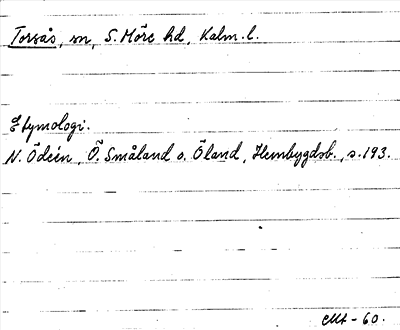 Torsås, sn, S. Möre hd, Kalm. l.
Etymologi.
N. Ödeén, Ö. Småland o. Öland, Hembygdsb., s. 193.
-60.